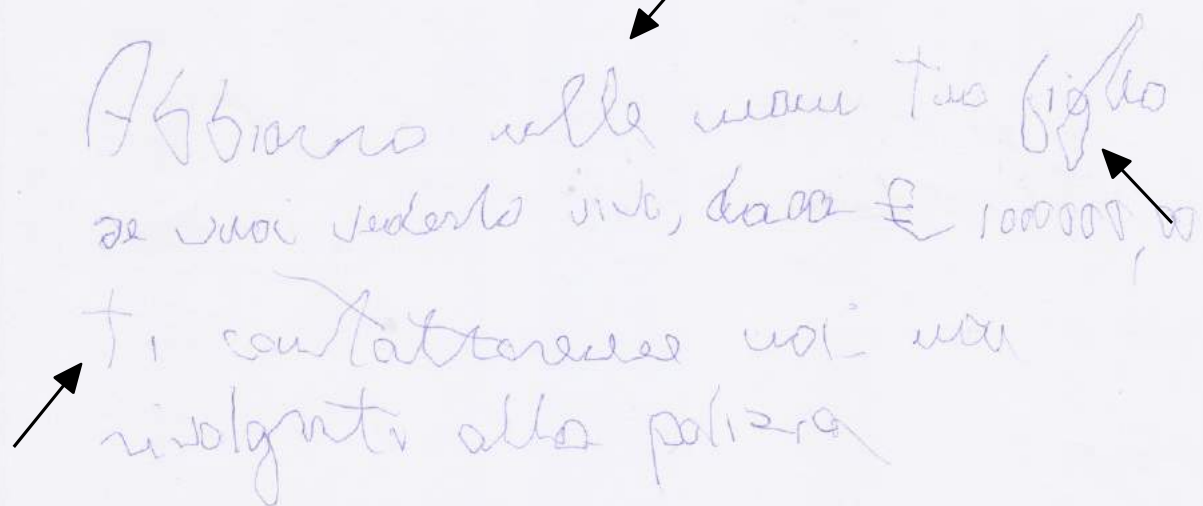 Abbiamo nelle mani tuo figlio
se vuoi vederlo vivo, € 1000000,00
ti contatteremo noi non
rivolgerti alla polizia